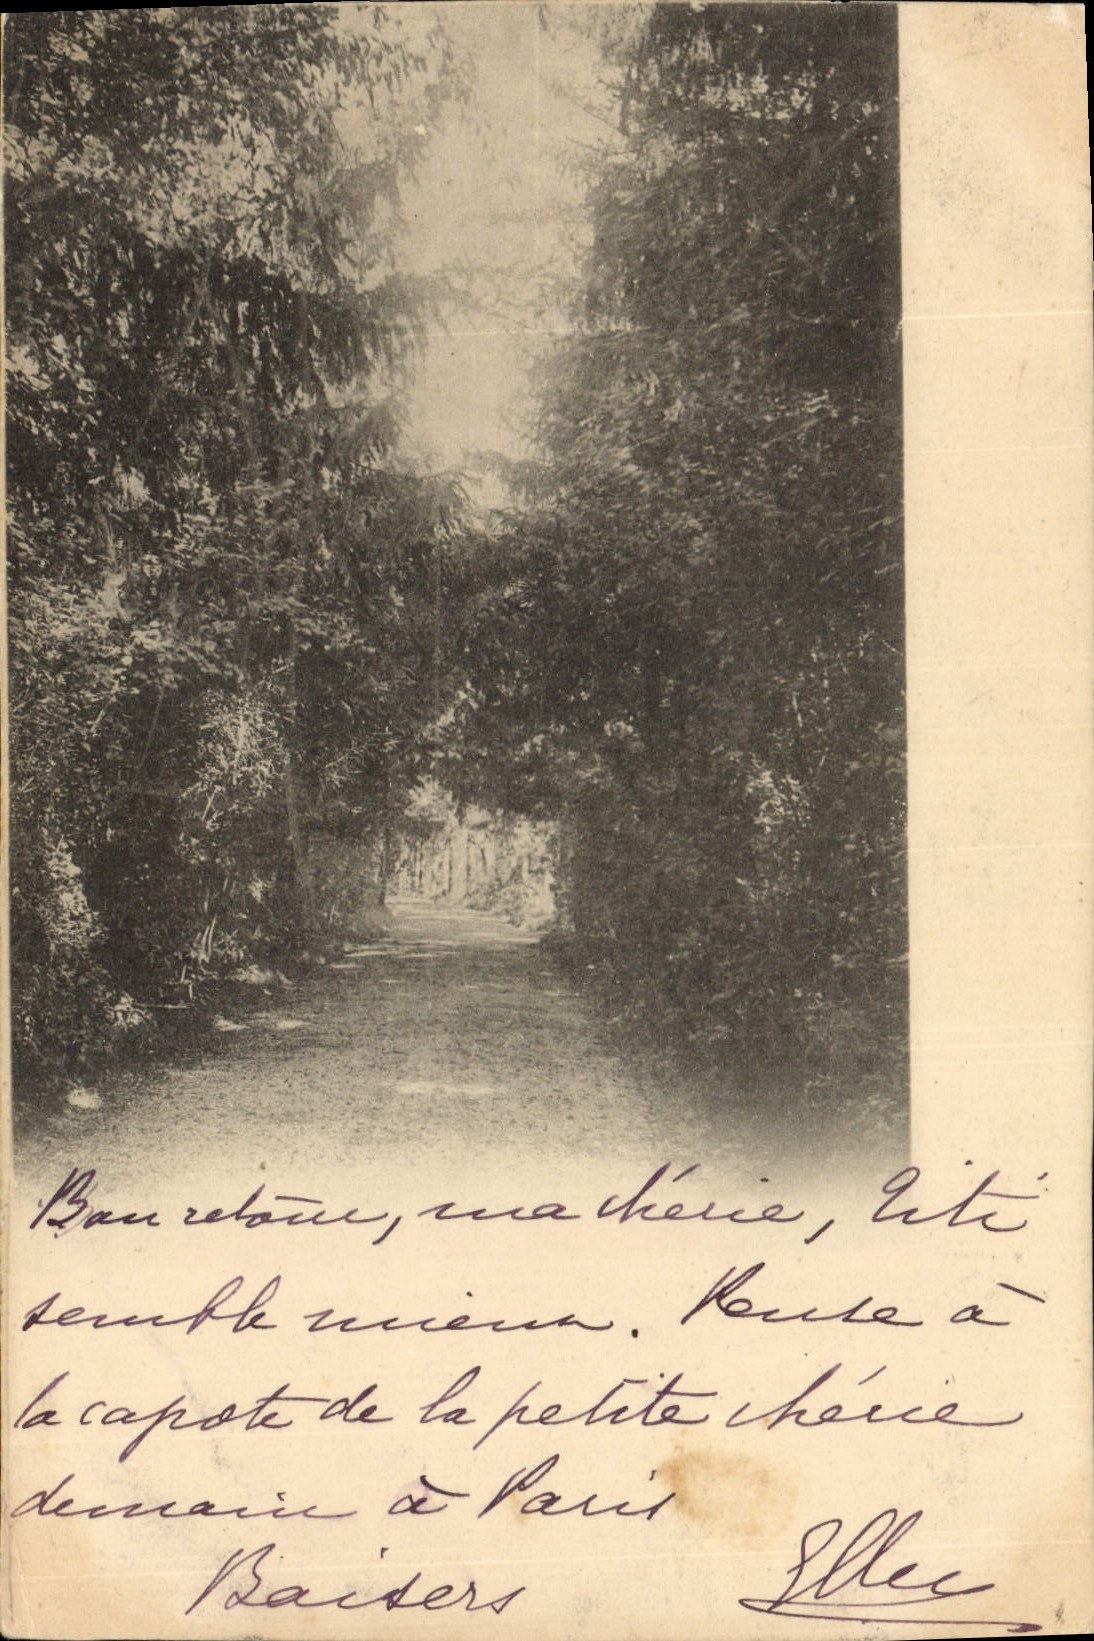 Bon retour, ma chérie, Titi
semble mieux. Pense à
la capote de la petite chérie
demain à Paris
Baisers